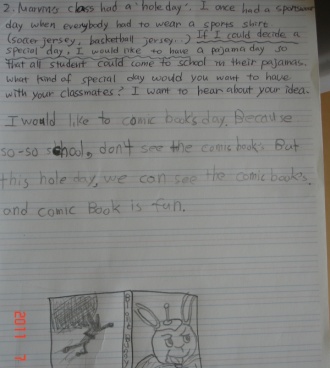 2. Mammoms class had a "hole day". I once had a sportswear
day when everybody had to wear a sports shirt
(soccer jersey, basketball jersey..) If I could decide a
special day, I would like to have a pajama day so
that all student could come to school in their pajamas.
What kind of special day would you want to have
with your classmates? I want to hear about your idea.
I would like to comic books day. Because
so-so school, don't see the comic books But
this hole day, we can see the comic books.
and comic Book is fun.
2011 7